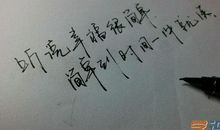 听说幸福很简单
简单到时间一冲就淡